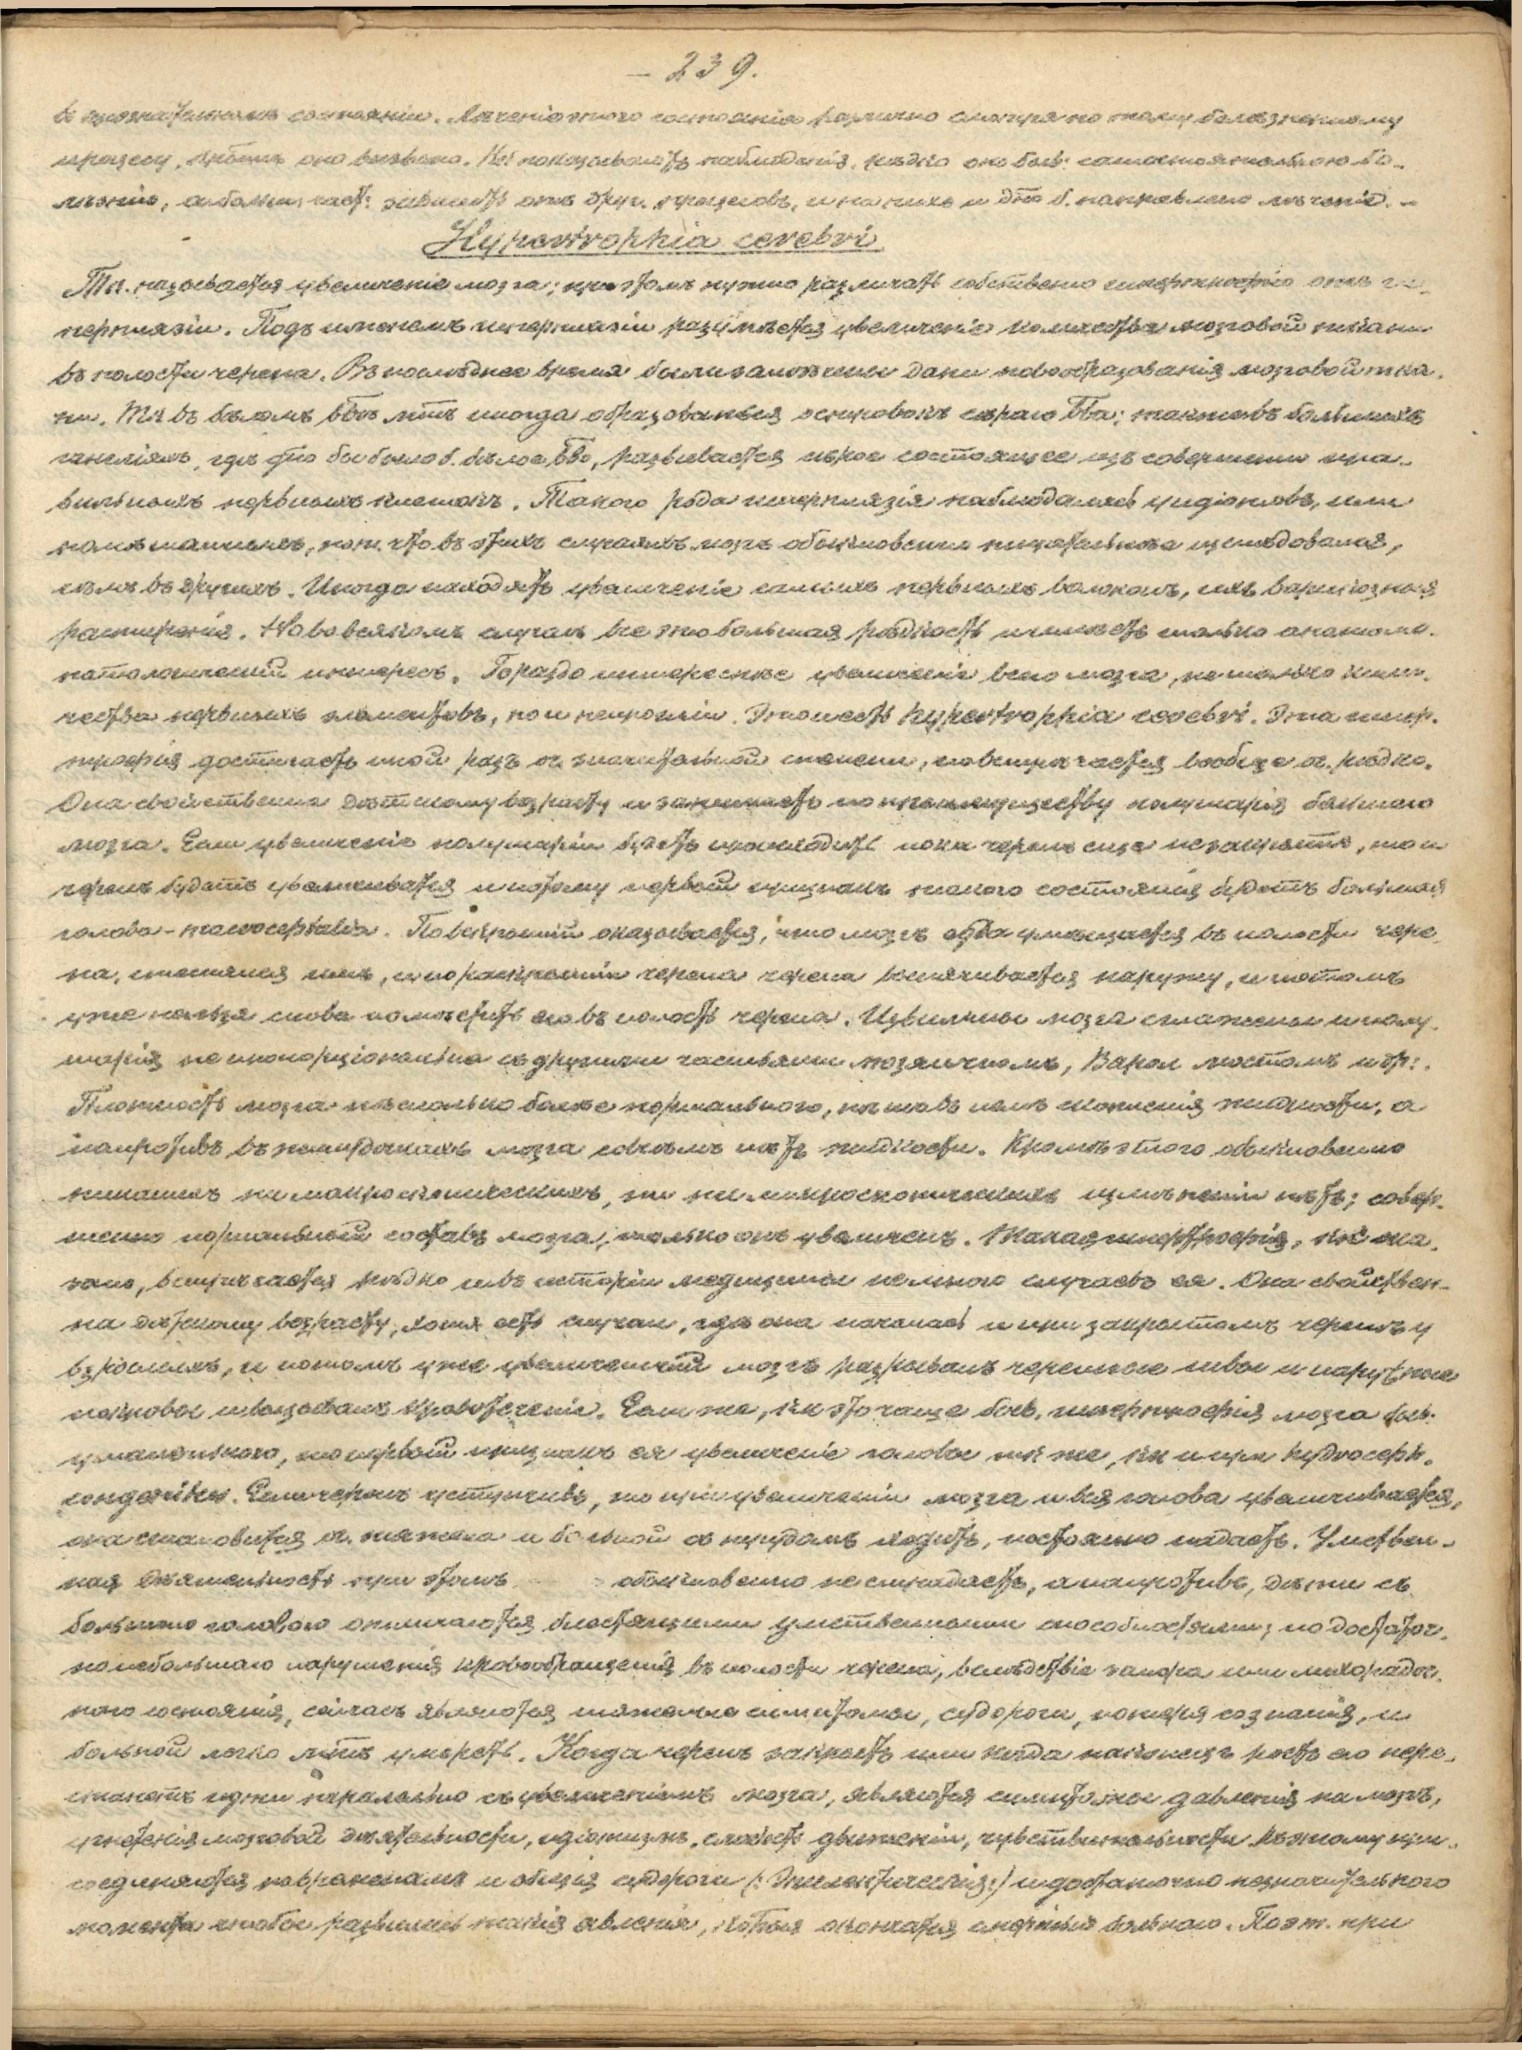 — 239.
въ безсознательномъ состояніи. Леченіе этого состоянія различно смотря по тому болѣзненному
процессу, которымъ оно вызвано. Какъ показываютъ наблюденія, рѣдко оно быв: самостоятельною бо-
лѣзнію, а большею част: зависитъ отъ друг. процессовъ, и на нихъ и д. б. направлено леченіе. —
Hypertrophia cerebri
Тк. называется увеличеніе мозга; при этомъ нужно различать собственно гипертрофію отъ ги-
перплязіи. Подъ именемъ гиперплязіи разумѣется увеличеніе количества мозговой ткани
въ полости черепа. Въ послѣднее время были заложены дан новообразованія мозговой тка-
ни. Тк въ бѣломъ иногда образованься островокъ сѣраго также въ большихъ
гангліяхъ, гдѣ бы было б. бѣлое, развивается сѣрое состоящее изъ совершенно пра-
вильныхъ нервныхъ клетокъ. Такого рода гиперплязія наблюдалась у идіотовъ, или
помѣшанныхъ, пот. что въ этихъ случаяхъ мозгъ обыкновенно тщательнѣе изслѣдовался,
чѣмъ въ другихъ. Иногда находятъ увеличеніе самихъ нервныхъ волоконъ, ихъ варикозныя
расширенія. Но во всякомъ случаѣ все это большая рѣдкость и имѣетъ только анатомо-
патологическій интересъ. Гораздо интереснѣе увеличеніе всего мозга, не только коли-
чества нервныхъ элементовъ, но и невроглiи. Это и есть hypertrophia cerebri. Эта гипер-
трофія достигаетъ иной разъ оч. значительной степени, но встрѣчается вообще оч. рѣдко.
Она свойственна дѣтскому возрасту и занимаетъ по преимуществу полушарія большого
мозга. Если увеличеніе полушарій будетъ происходить пока черепъ еще не закрытъ, то и
черепъ будетъ увеличиваться и потому первый признакъ такого состоянія будетъ большая
голова - macrocephalia. По вскрытіи оказывается, что мозгъ едва умѣщается въ полости чере-
па, стѣсняемъ имъ, и по раскрытіи черепа черепа выпячивается наружу, и потомъ
уже нельзя снова помѣстить его въ полость черепа. Извилины мозга сглажены и полу-
шарія не пропорціональна съ другими частями мозжечкомъ, Варол мостомъ и др:.
Плотность мозга нѣсколько болѣе нормальнаго, нѣтъ въ немъ скопленія жидкости, а
напротивъ въ желудочкахъ мозга совсѣмъ нѣтъ жидкости. Кромѣ этого обыкновенно
никакихъ ни макроскопическихъ, ни микроскопическихъ измѣненій нѣтъ; совер-
шенно нормальный составъ мозга, только онъ увеличенъ. Такая гипертрофія, какъ ска-
зано, встрѣчается рѣдко и въ исторіи медицины немного случаевъ ея. Она свойствен-
на дѣтскому возрасту, хотя есть случаи, гдѣ она началась и при закрытомъ черепѣ у
взрослыхъ, и потомъ уже увеличенный мозгъ разрывалъ черепные швы и наружные
покровы и вызывалъ кровотеченіе. Если же, какъ это чаще быв. гипертрофія мозга быв.
у маленького, то первый признакъ ея увеличеніе головы такъ же, какъ и при hydroceph.
congenitus. Если черепъ уступчивъ, то при увеличеніи мозга и вся голова увеличивается,
она становится оч. тяжела и больной съ трудомъ ходитъ, постоянно падаетъ. Умствен-
ная дѣятельность при этомъ обыкновенно не страдаетъ, а напротивъ, дѣти съ
большою головою отличаются блестящими умственными способностями; но достаточ-
но небольшаго нарушенія кровообращенія въ полости черепа, вслѣдствіе запора или лихорадоч-
наго состоянія, сейчасъ являются тяжелые симптомы, судороги, потеря сознанія, и
больной легко м. умереть. Когда черепъ закрытъ или когда наконецъ ростъ его пере-
станетъ идти паралельно съ увеличеніемъ мозга, являются симптомы давленія на мозгъ,
угнетенія мозговой дѣятельности, идіотизмъ, слабость движеній, чувствительности. Къ этому при-
соединяются по временамъ и общія судороги (: Эпилептическія:) и достаточно незначительного
момента чтобы развились такія явленія, которыя окончатся смертью больнаго. Поэт. при